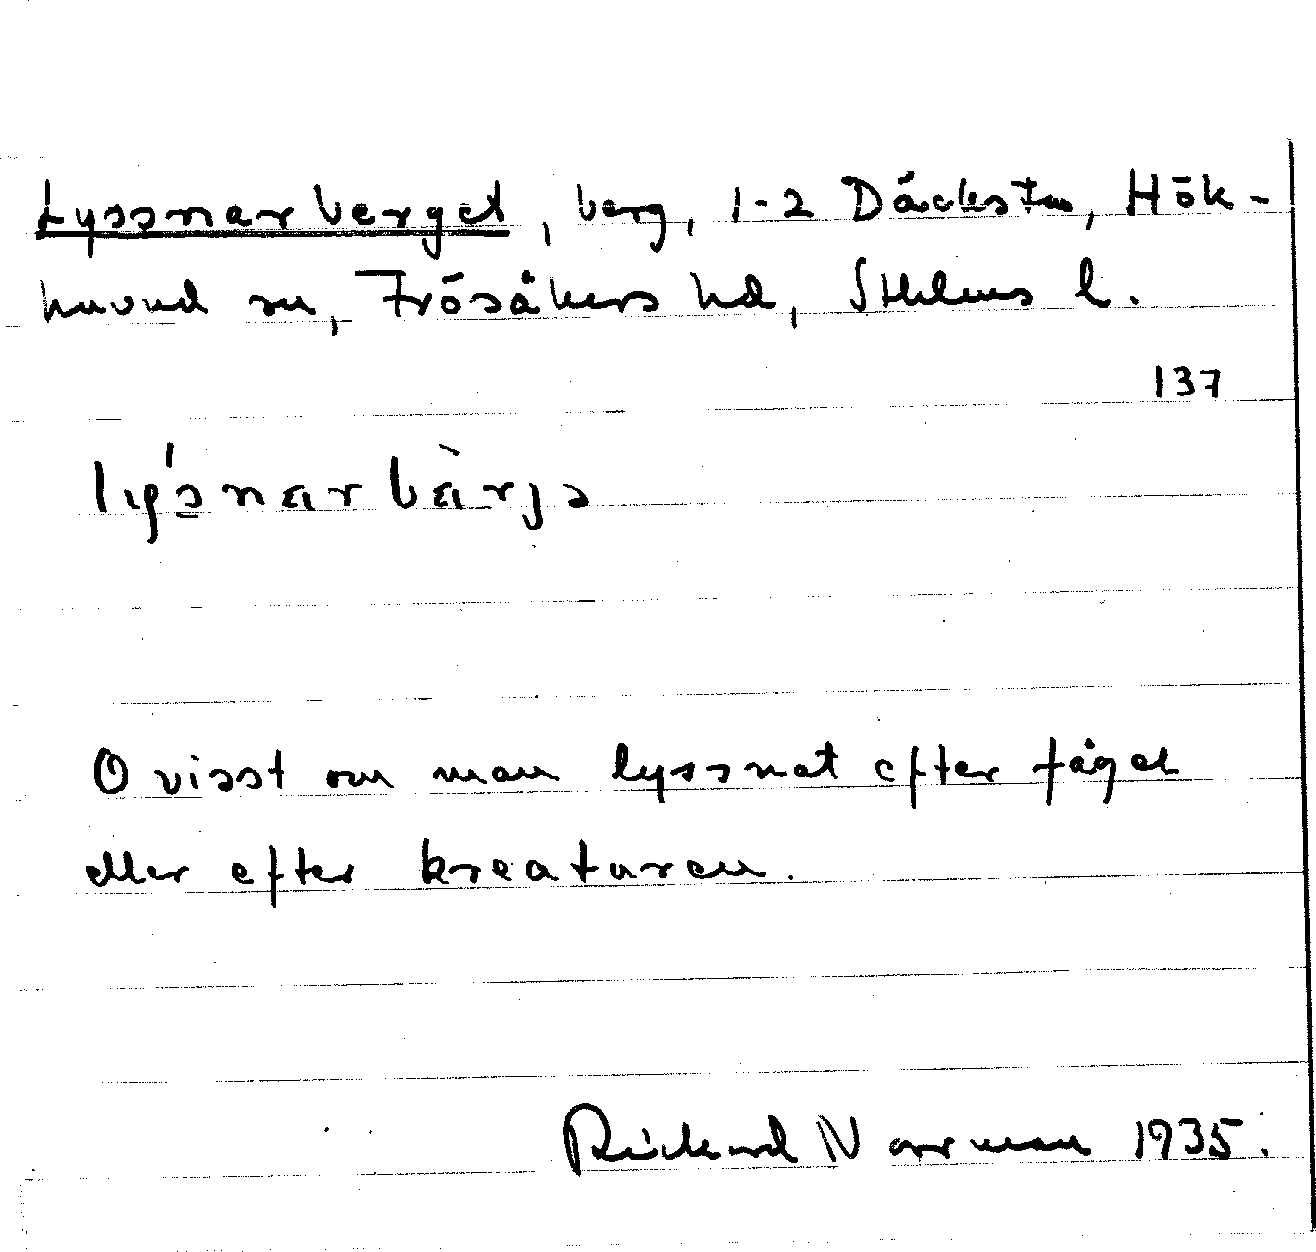 Lyssnarberget, berg, 1-2 Däcksta, Hök-
huvud sn, Frösåkers hd, Sthlms l.
137
lys´narbàrjə
Ovisst om man lyssnat efter fågel
eller efter kreaturen.
Rickard Norrman 1935.